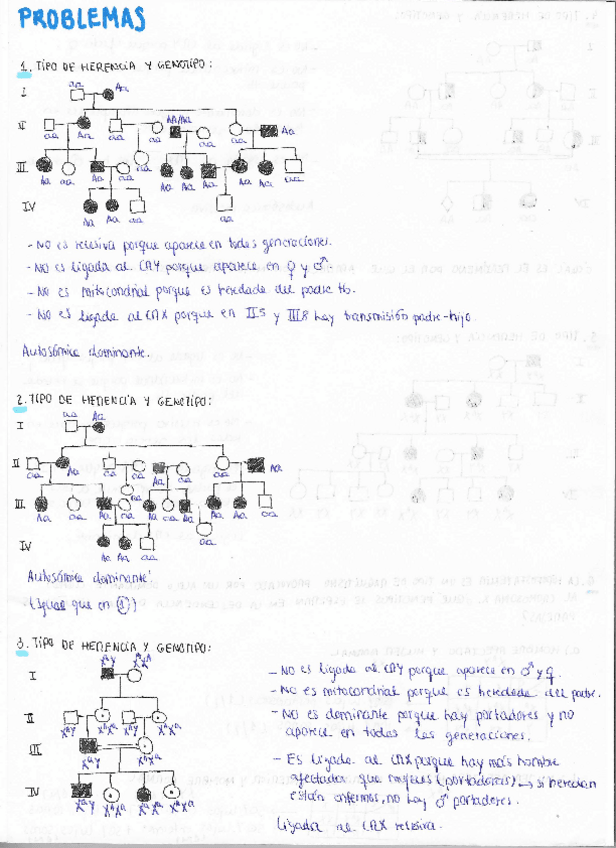 PROBLEMAS
1. TIPO DE HERENCIA Y GENOTIPO:
I
aa Aa
II
aa Aa aa aa AA/Aa aa aa Aa
III
Aa aa Aa aa Aa Aa Aa Aa Aa aa
IV
Aa Aa aa aa
- NO es recesiva porque aparece en todas generaciones.
- NO es ligada al CRY porque aparece en ♀ y ♂.
- NO es mitocondrial porque es heredada del padre tb.
- NO es ligada al CRX porque en II5 y III8 hay transmisión padre-hijo.
Autosómica dominante.
2. TIPO DE HERENCIA Y GENOTIPO:
I
aa Aa
II
aa Aa aa aa Aa aa aa Aa
III
Aa aa Aa aa Aa aa Aa Aa Aa aa
IV
Aa Aa aa aa
Autosómica dominante
(Igual que en ①)
3. TIPO DE HERENCIA Y GENOTIPO:
I
II
III
IV
- NO es ligada al CRY porque aparece en ♂ y ♀.
- NO es mitocondrial porque es heredada del padre.
- NO es dominante porque hay portadores y no
aparece en todas las generaciones.
- Es ligada al CRX porque hay más hombre
afectados que mujeres (portadoras) → si heredan
están enfermos, no hay ♂ portadores.
Ligada al CRX recesiva.